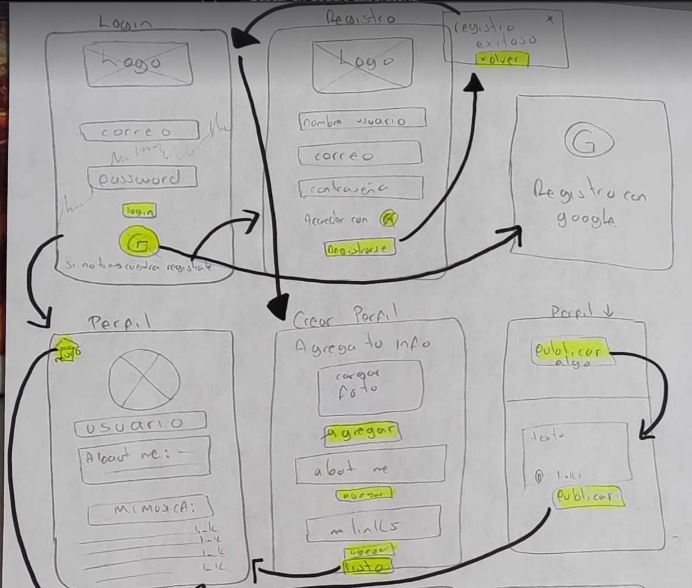 Login
Logo
correo
password
login
G
si no tienes cuenta registrate
Registro
Logo
nombre usuario
correo
contraseña
Acceder con G
Registrarse
registro x
exitoso
volver
G
Registro con
google
Perfil
usuario
About me:
MI MUSICA:
link
link
link
link
Crear Perfil
Agrega tu info
cargar
foto
agregar
abot me
agregar
links
agregar
listo
Perfil ↓
publicar
algo
texto
links
publicar